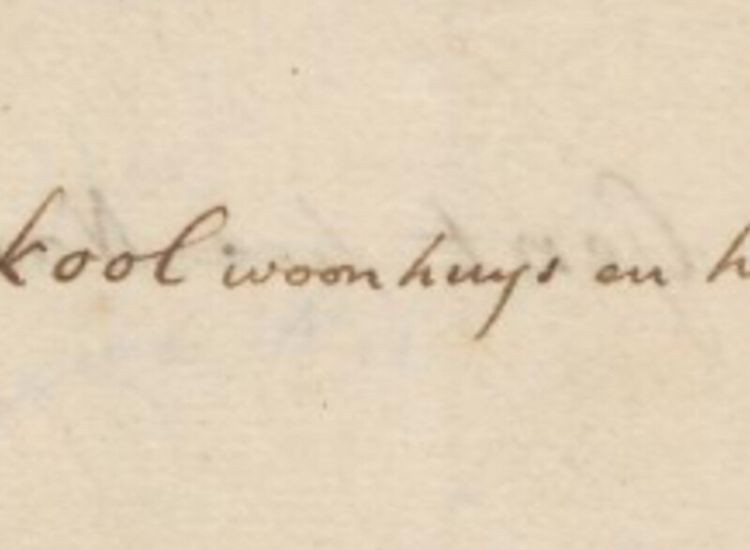 kool woonhuys en h